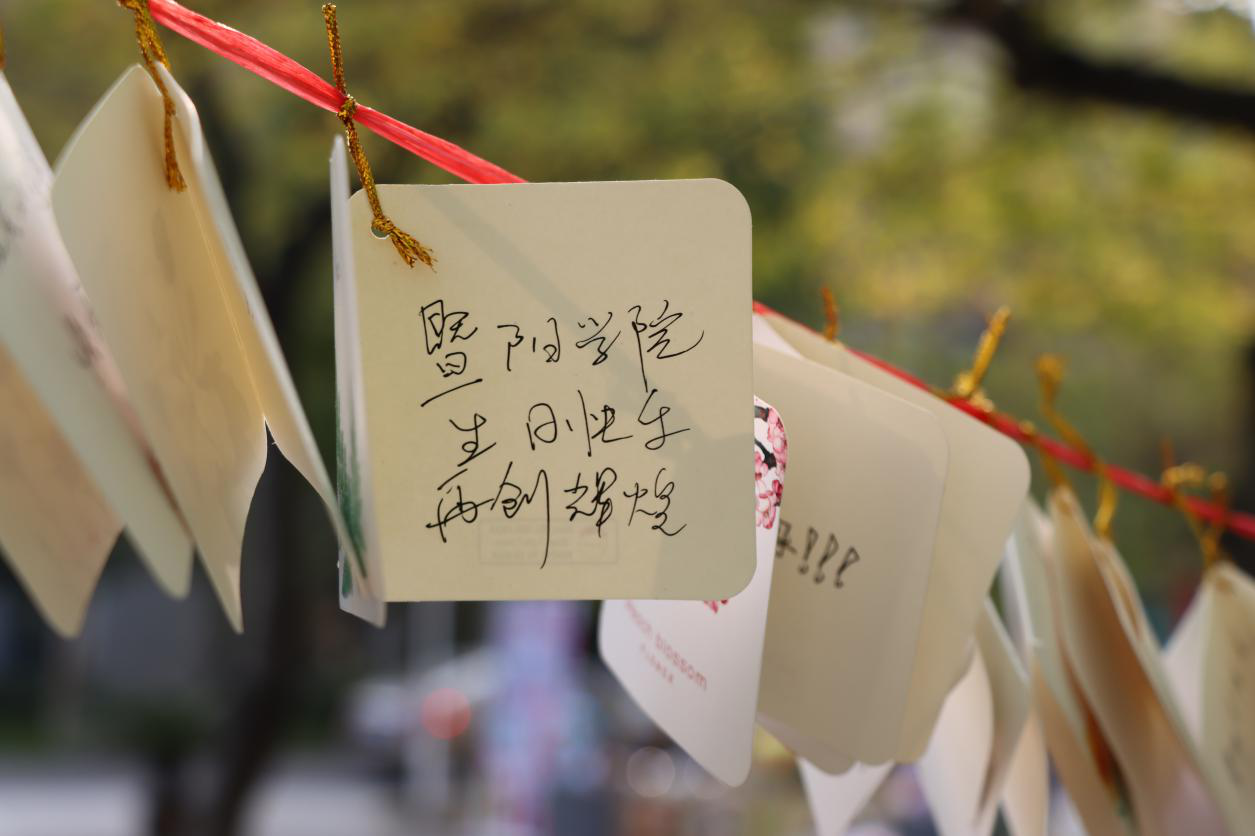 暨阳学院
生日快乐
再创辉煌
!!!
blossom